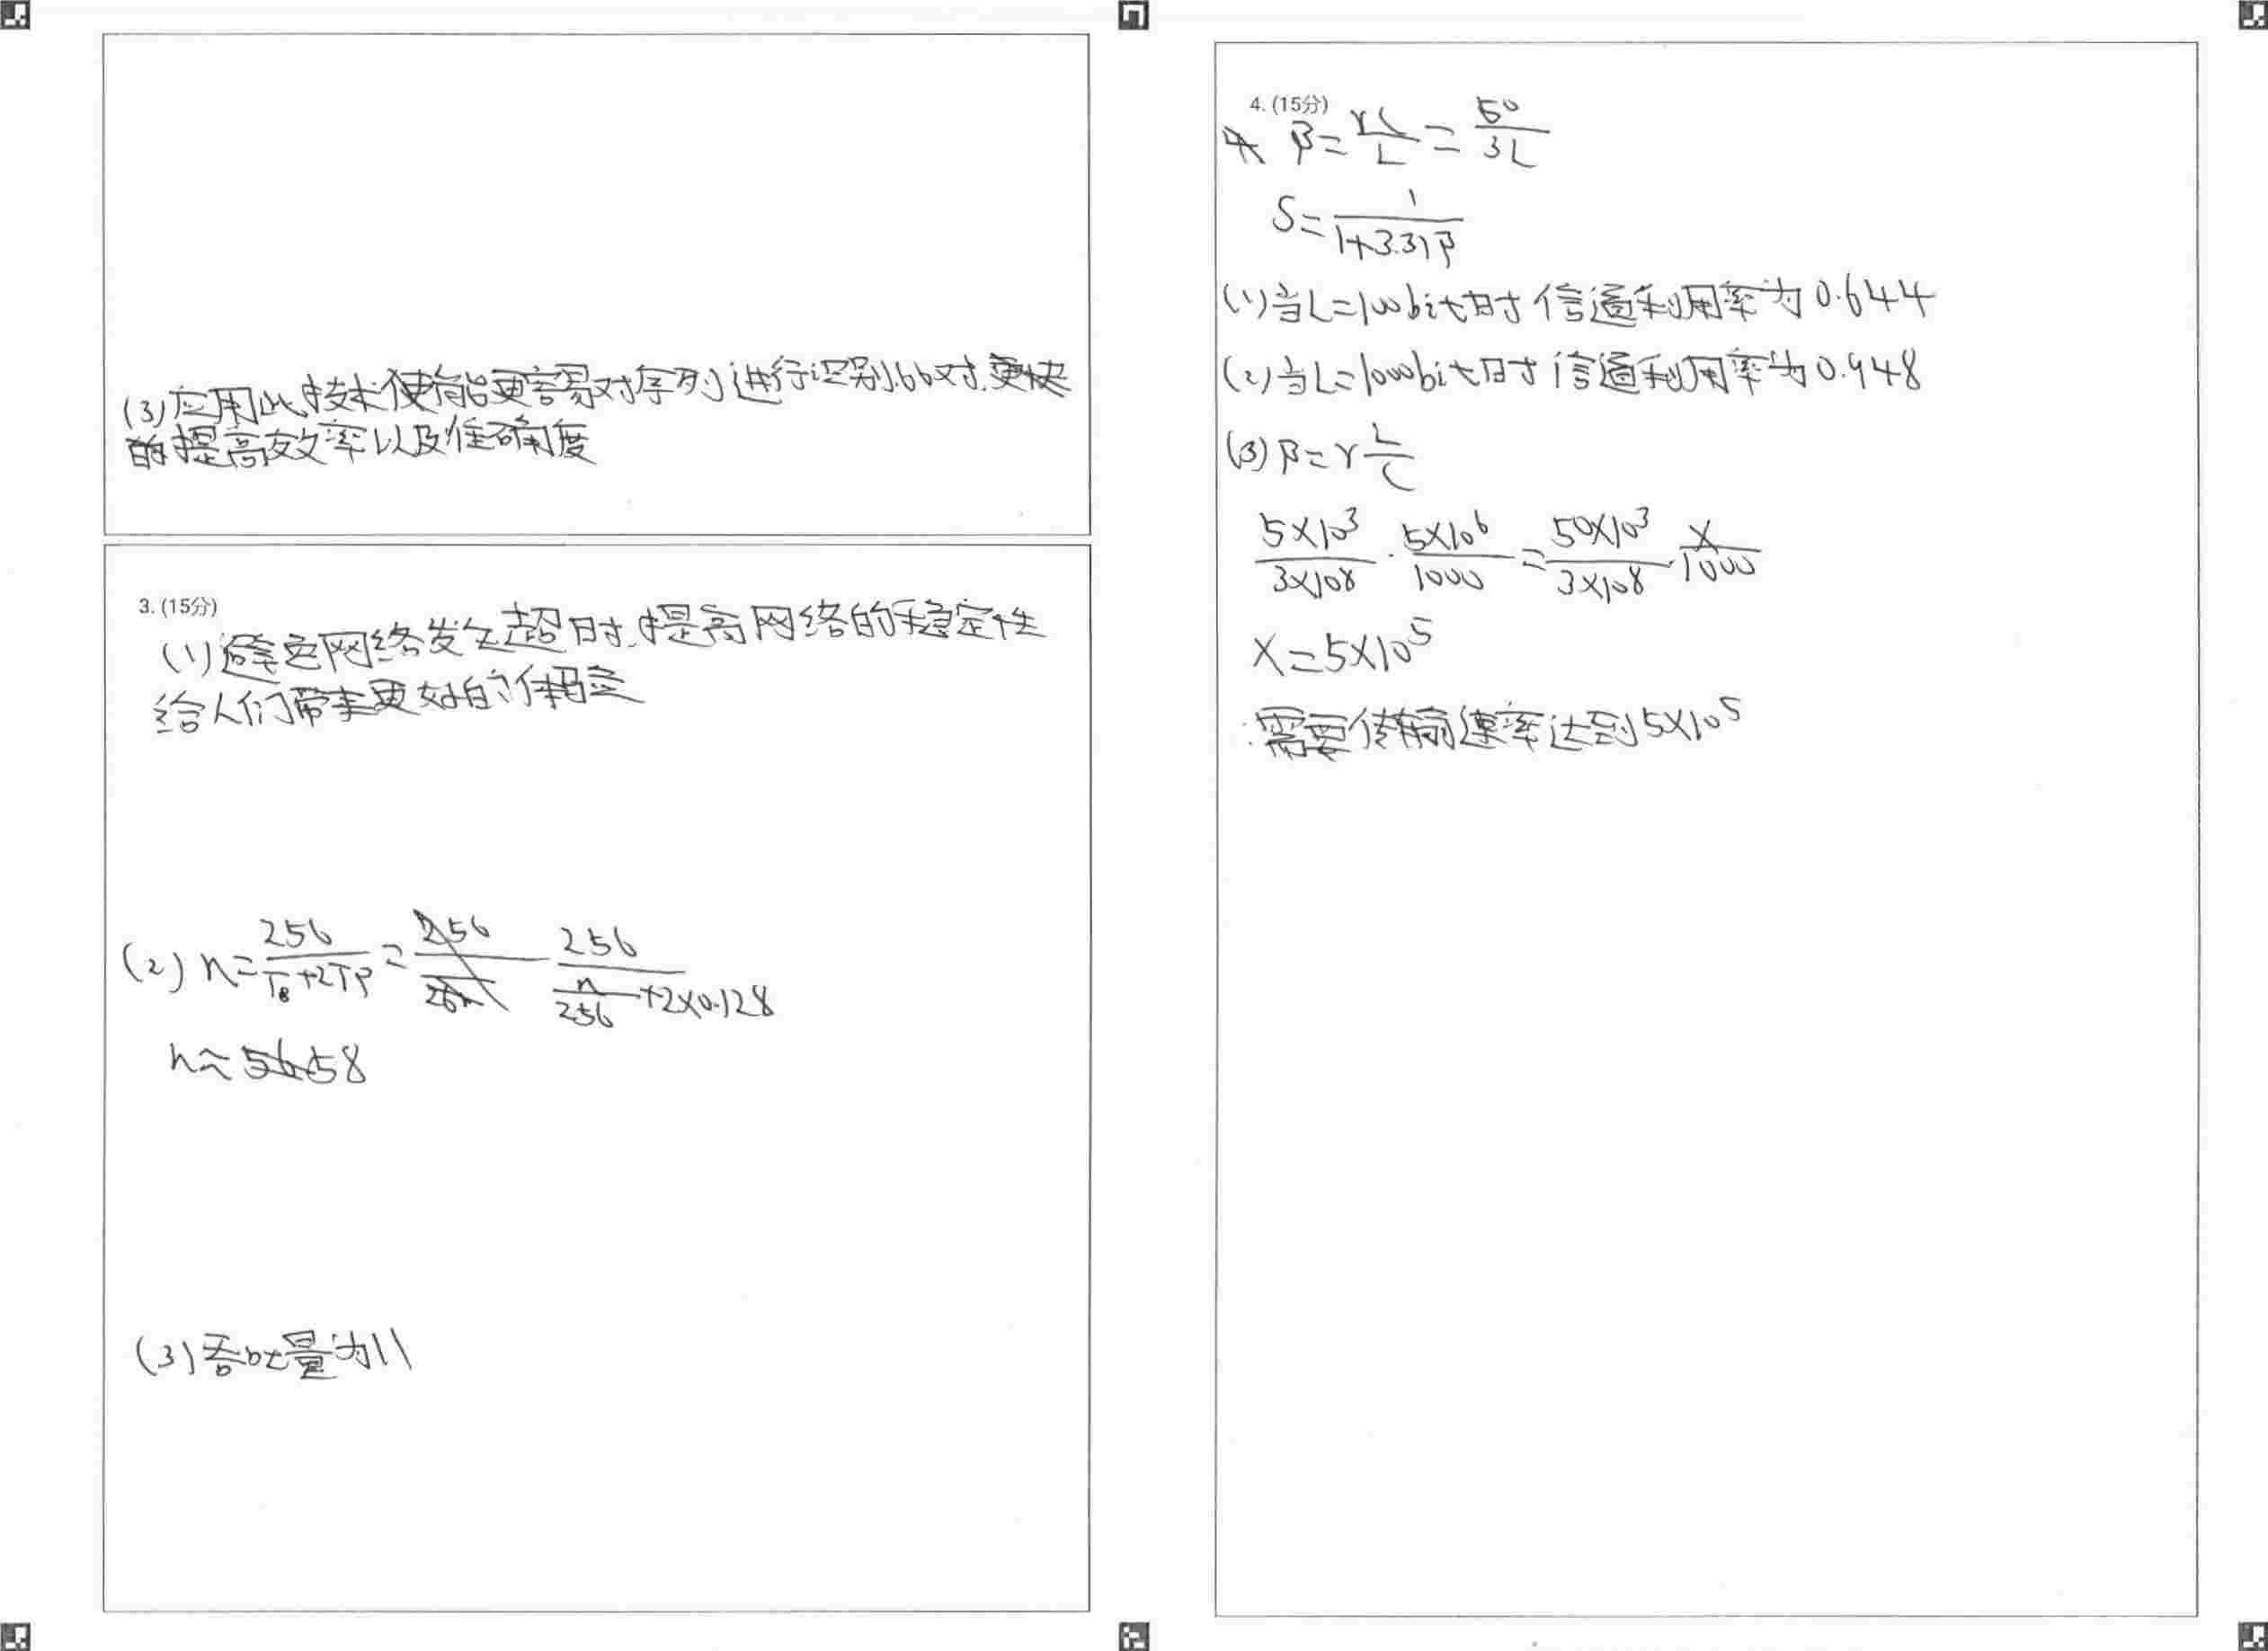 (3)应用此技术使能更容易对序列进行识别比对,更快
的提高效率以及准确度
3. (15分)
(1)避免网络发生超时,提高网络的稳定性
给人们带来更好的体验
(2) n=256/(T₈+2TP)=256/(n/256+2×0.128)
n≈58
(3)吞吐量为11
4. (15分)
β=γC/L=50/3L
S=1/(1+3.31β)
(1)当L=100bit时 信道利用率为0.644
(2)当L=1000bit时 信道利用率为0.948
(3) β=γL/C
5×10³/3×10⁸·5×10⁶/1000=50×10³/3×10⁸·X/1000
X=5×10⁵
∴需要传输速率达到5×10⁵